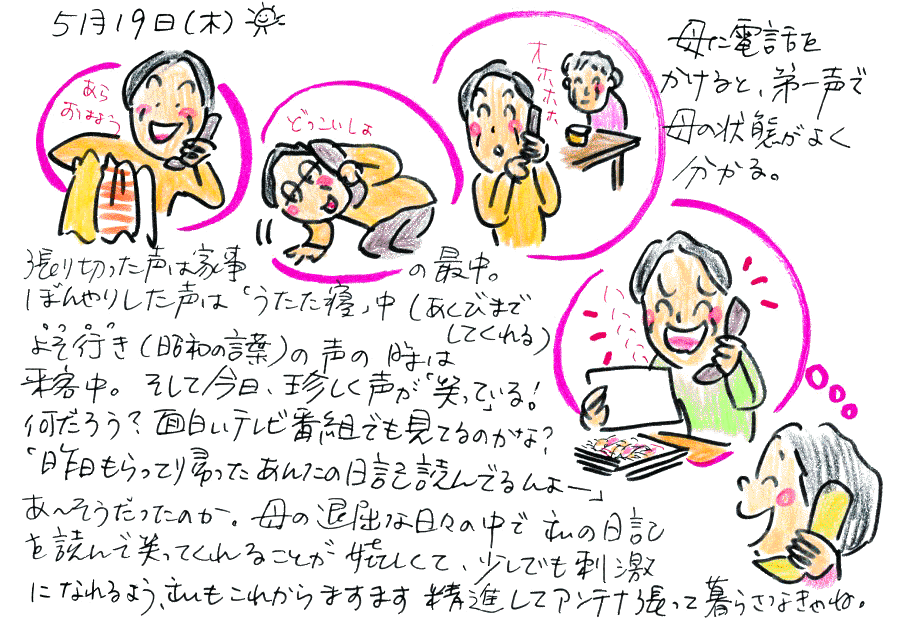 5月19日(木)
あら
おはよう
どっこいしょ
オホホホホ
母に電話を
かけると、第一声で
母の状態がよく
分かる。
張り切った声は家事の最中。
ぼんやりした声は「うたた寝」中(あくびまで
してくれる)
よそ行き(昭和の言葉)の声の時は
来客中。そして今日、珍しく声が「笑っている!
何だろう?面白いテレビ番組でも見てるのかな?
いいいいい
「昨日もらって帰ったあんたの日記読んでるんよー」
あ〜そうだったのか。母の退屈な日々の中で私の日記
を読んで笑ってくれることが嬉しくて、少しでも刺激
になれるよう、私もこれからますます精進してアンテナ張って暮らさなきゃね。